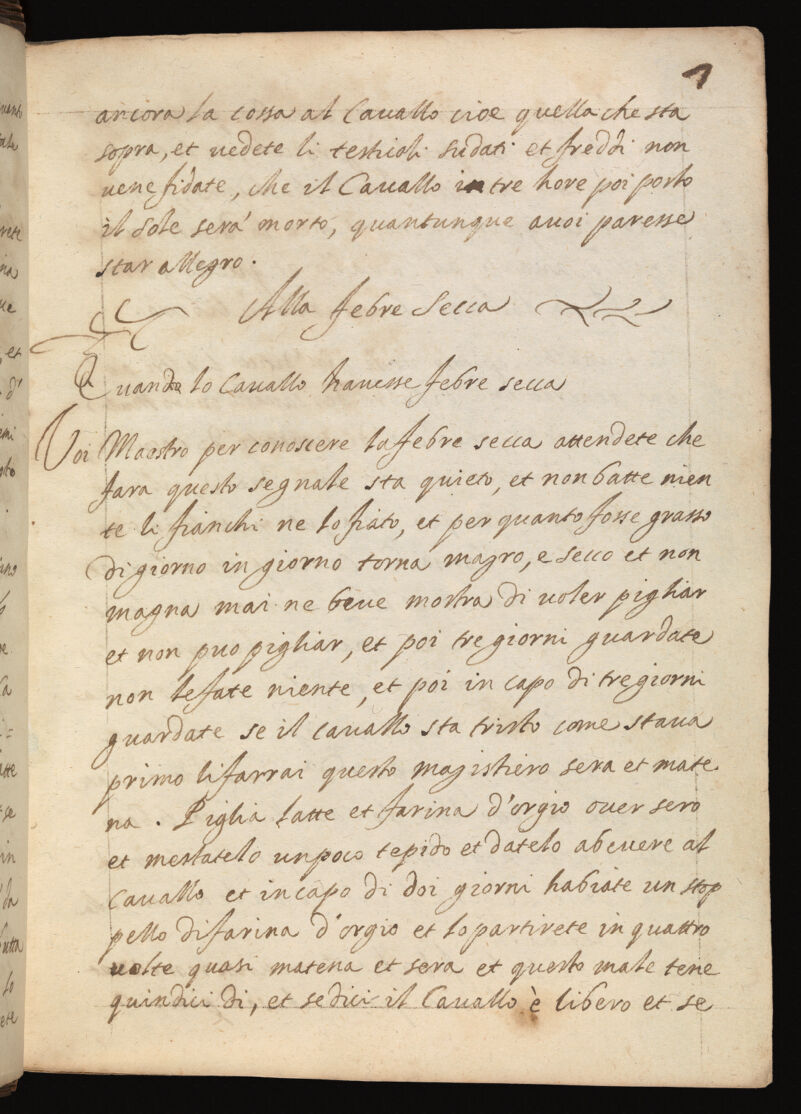 1
ancora la cossa al Cavallo cioe quella che sta
sopra, et vedete li testicoli sudati et freddi non
vene fidate, che il Cavallo in tre hore poi posto
il sole sera' morto, quantunque avoi paresse
star allegro.
Alla febre secca
Quando lo Cavallo havesse febre secca
Voi Maestro per conoscere la febre secca attendete che
fara questo segnale sta quieto, et non batte nien
te li fianchi ne lo fiato, et per quanto fosse grasso
di giorno in giorno torna magro, e secco et non
magna mai ne beve mostra di voler pigliar
et non puo pigliar, et poi tre giorni guardate
non le fate niente, et poi in capo di tre giorni
guardate se il cavallo sta tristo come stava
primo li farrai questo magistiero sera et mate
na. Piglia latte et farina d'orgio over sero
et mescatelo un poco tepido et datelo a bevere al
Cavallo et in capo di doi giorni habiate un stop
pello di farina d'orgio et lo partirete in quattro
volte quasi matena et sera et questo male tene
quindici di, et sedici il Cavallo è libero et se